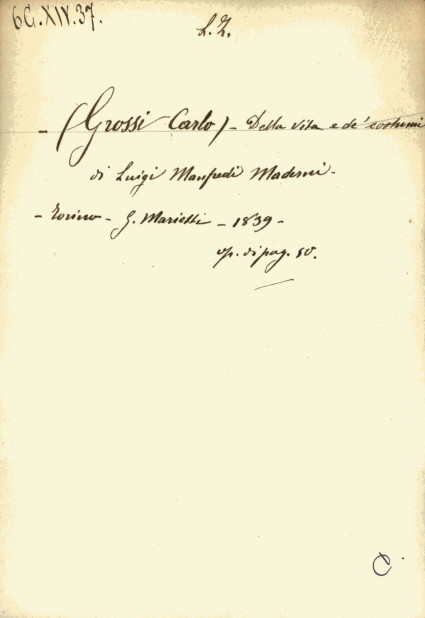 6G.XIV.37.
L.Z.
- (Grossi Carlo) - Della vita e de' costumi
di Luigi Manfredi Maderni.
- Torino - G. Marietti - 1839 -
op. di pag. 50.
C.